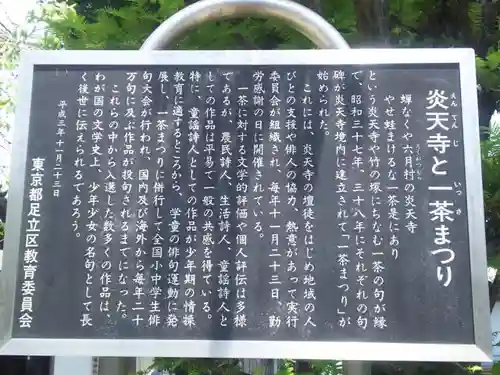 炎天寺と一茶まつり
えんてんじ
いっさ
蝉なくや六月村の炎天寺
やせ蛙まけるな一茶是にあり
という炎天寺や竹の塚にちなむ一茶の句が縁
で、昭和三十七年、三十八年にそれぞれの句
碑が炎天寺境内に建立されて「一茶まつり」が
始められた。
これには、炎天寺の壇徒をはじめ地域の人
びとの支援や俳人の協力、熱意があって実行
委員会が組織され、毎年十一月二十三日、勤
労感謝の日に開催されている。
一茶に対する文学的評価や個人評伝は多様
であるが、農民詩人、生活詩人、童謡詩人と
しての作品は平易で一般の共感を得ている。
特に、童謡詩人としての作品が少年期の情操
教育に適するところから、学童の俳句運動に発
展し、一茶まつりに併行して全国小中学生俳
句大会が行われ、国内及び海外から毎年二十
万句に及ぶ作品が投句されるまでになった。
これらの中から入選した数多くの作品は、
わが国の文学史上、少年少女の名句として長
く後世に伝えられるであろう。
平成三年十一月二十三日
東京都足立区教育委員会